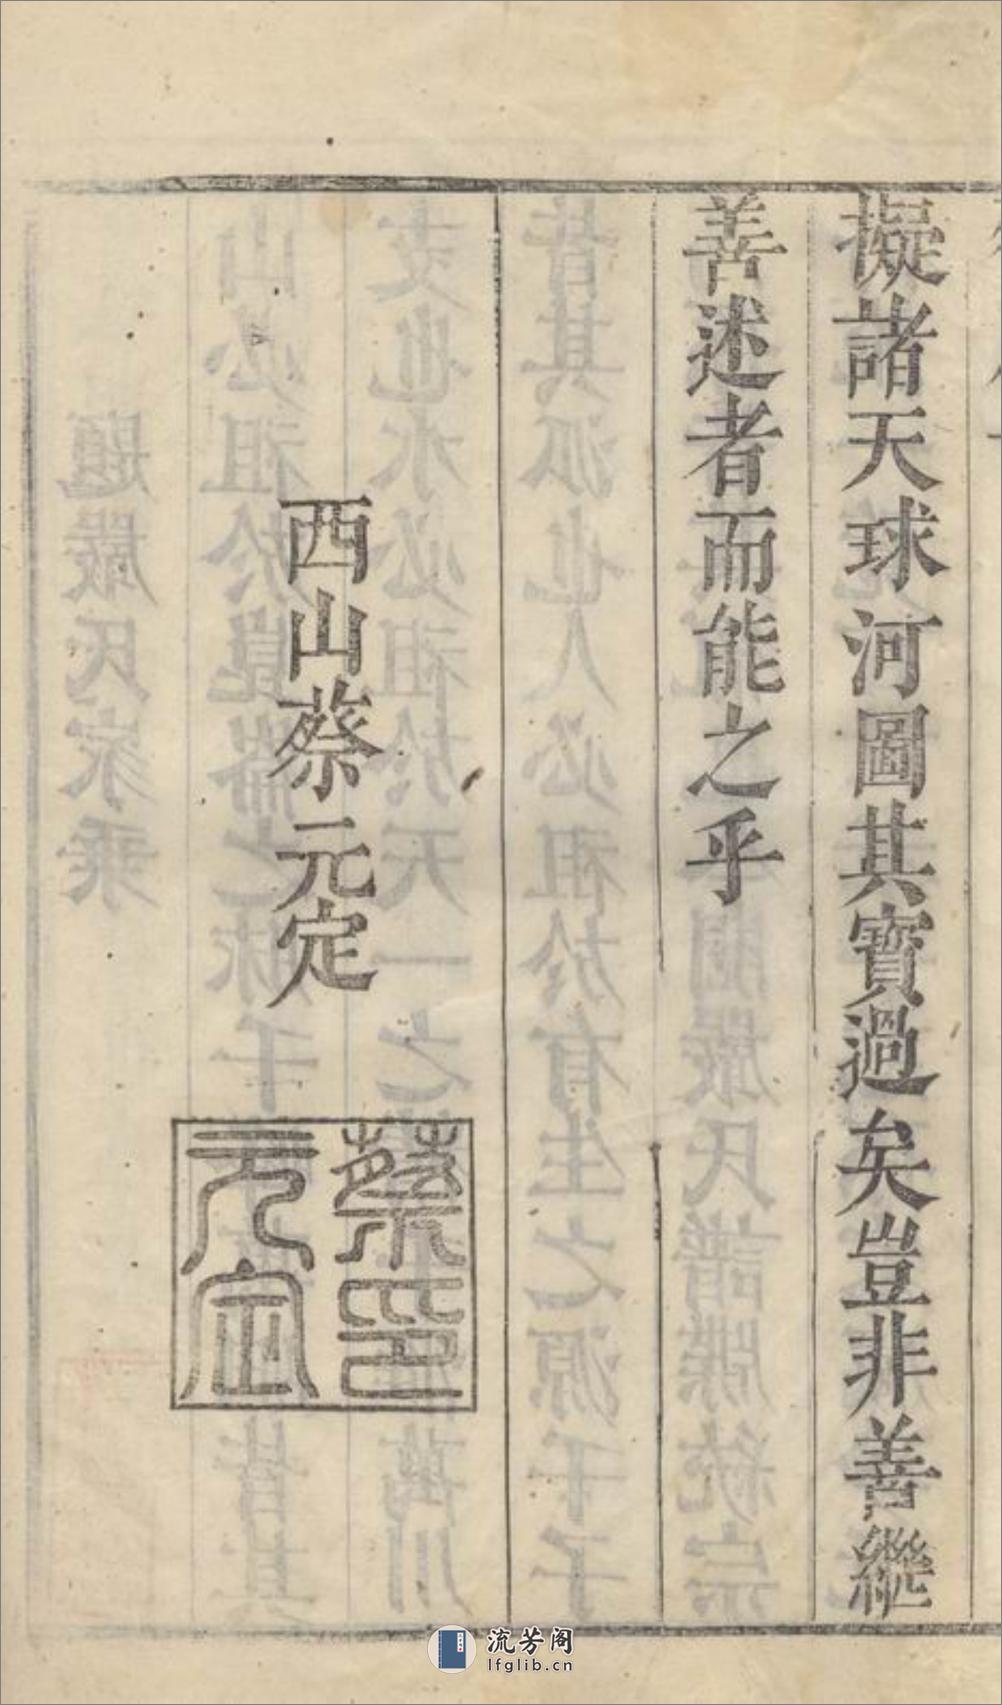 擬諸天球河圖其寶過矣豈非善繼
善述者而能之乎
西山蔡元定
蔡印
元定
流芳阁
lfglib.cn